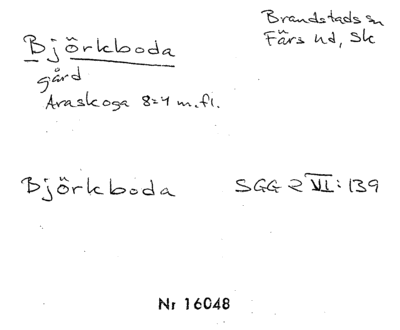 Björkboda
Brandstads sn
Färs hd, Sk
gård
Araskoga 8:4 m.fl.
Björkboda SGG 2 VI: 139
Nr 16048